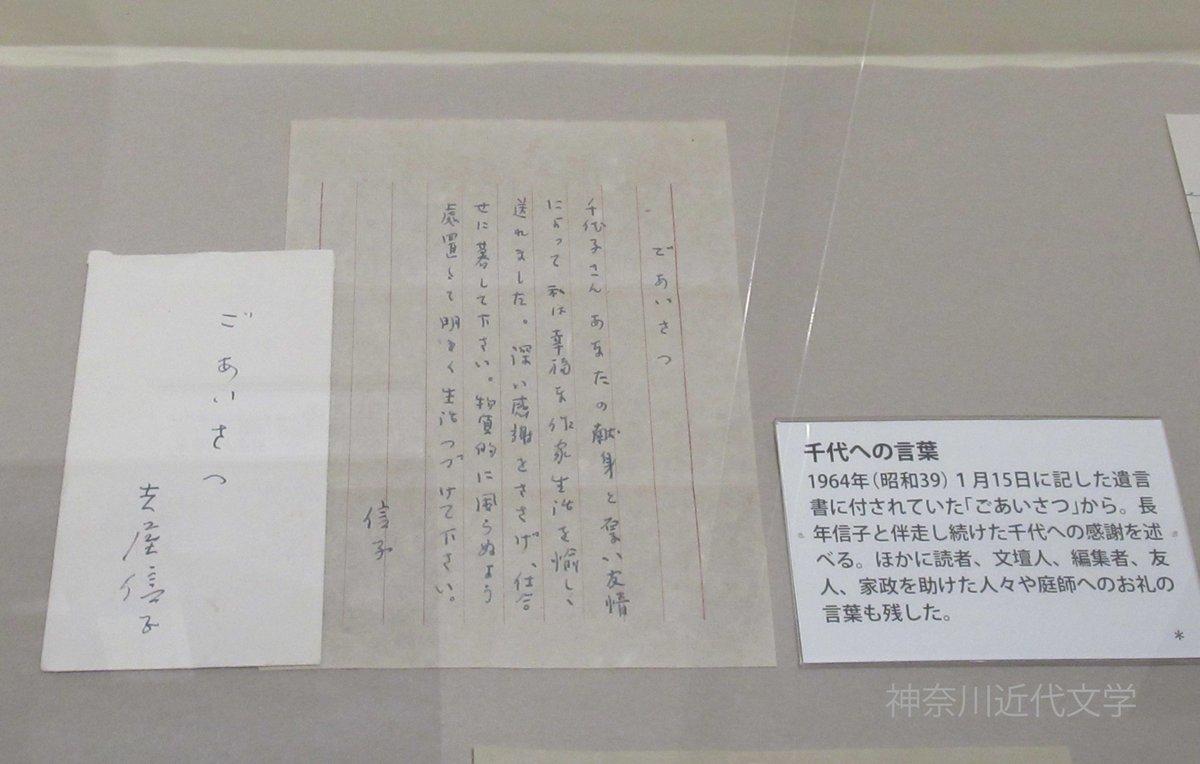 ごあいさつ
吉屋信子
ごあいさつ
千代子さん あなたの献身と 友情
によって私は幸福な作家生活を愉しく
送れました。深い感謝をささげ、仕合
せに暮して下さい。物質的に困らぬよう
處置して明るく生活つづけて下さい。
信子
千代への言葉
1964年(昭和39)1月15日に記した遺言
書に付されていた「ごあいさつ」から。長
年信子と伴走し続けた千代への感謝を述
べる。ほかに読者、文壇人、編集者、友
人、家政を助けた人々や庭師へのお礼の
言葉も残した。
*
神奈川近代文学